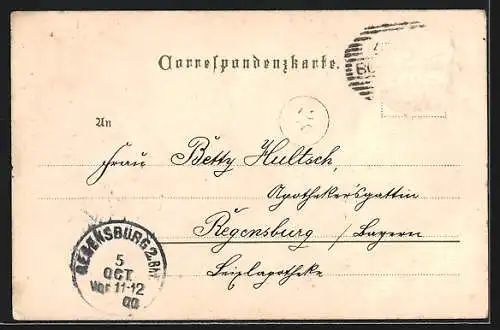 Correspondenzkarte.
An
Frau Betty Hultsch,
Apothekersgattin
Regensburg / Bayern
REGENSBURG 2. Bhf
5
OCT.
Vor 11-12
00